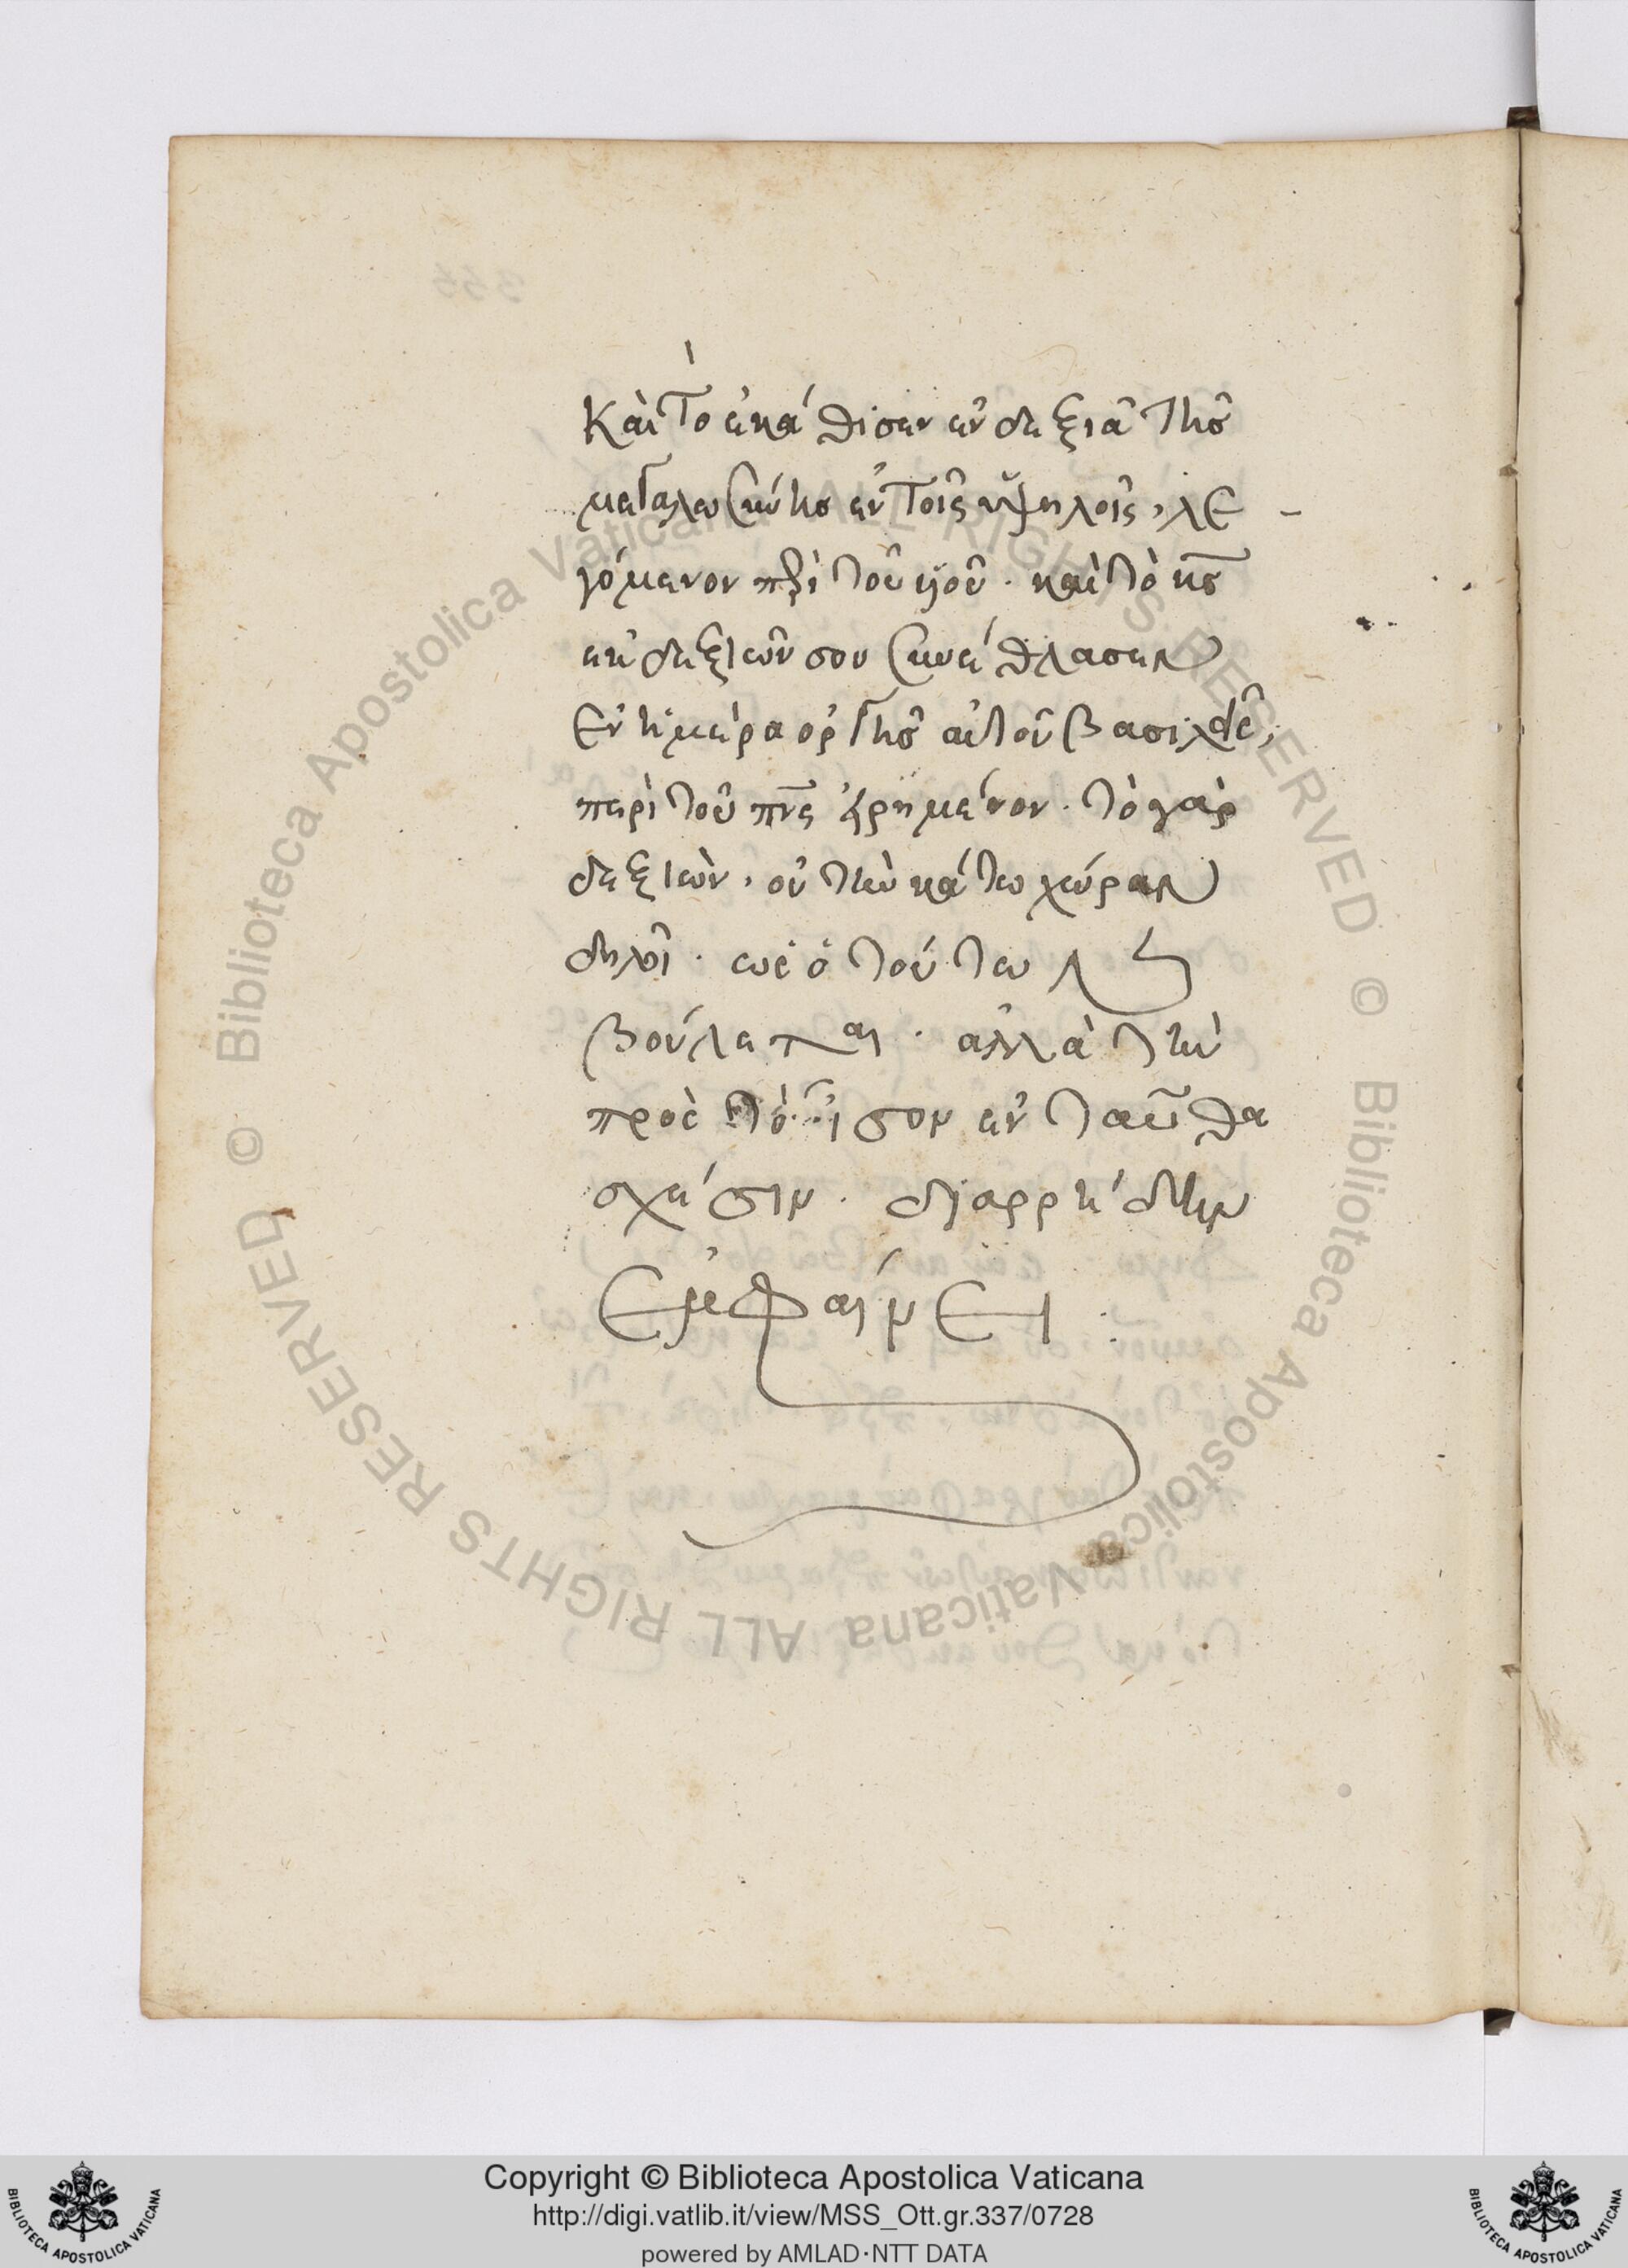 Καὶ τὸ ἐκάθισεν ἐν δεξιᾶ τῆς
μεγαλωσύνης ἐν τοῖς ὑψηλοῖς, λε
γόμενον περὶ τοῦ υἱοῦ· καὶ τὸ κς
ἐκ δεξιῶν σου συνέθλασεν
ἐν ἡμέρα ὀργῆς αὐτοῦ βασιλεῖς,
περὶ τοῦ πνς εἰρημένον· τὸ γὰρ
δεξιὸν, οὐ τὴν κάτω χώραν
δηλοῖ· ὡς ὁ τούτων
βούλεται· ἀλλὰ τὴν
πρὸς τὸ ἴσον ἐνταῦθα
σχέσιν· διαρρήδην
ἐμφαίνει:
Copyright © Biblioteca Apostolica Vaticana
http://digi.vatlib.it/view/MSS_Ott.gr.337/0728
powered by AMLAD·NTT DATA
BIBLIOTECA APOSTOLICA VATICANA
BIBLIOTECA APOSTOLICA VATICANA
© Biblioteca Apostolica Vaticana ALL RIGHTS RESERVED
© Biblioteca Apostolica Vaticana ALL RIGHTS RESERVED